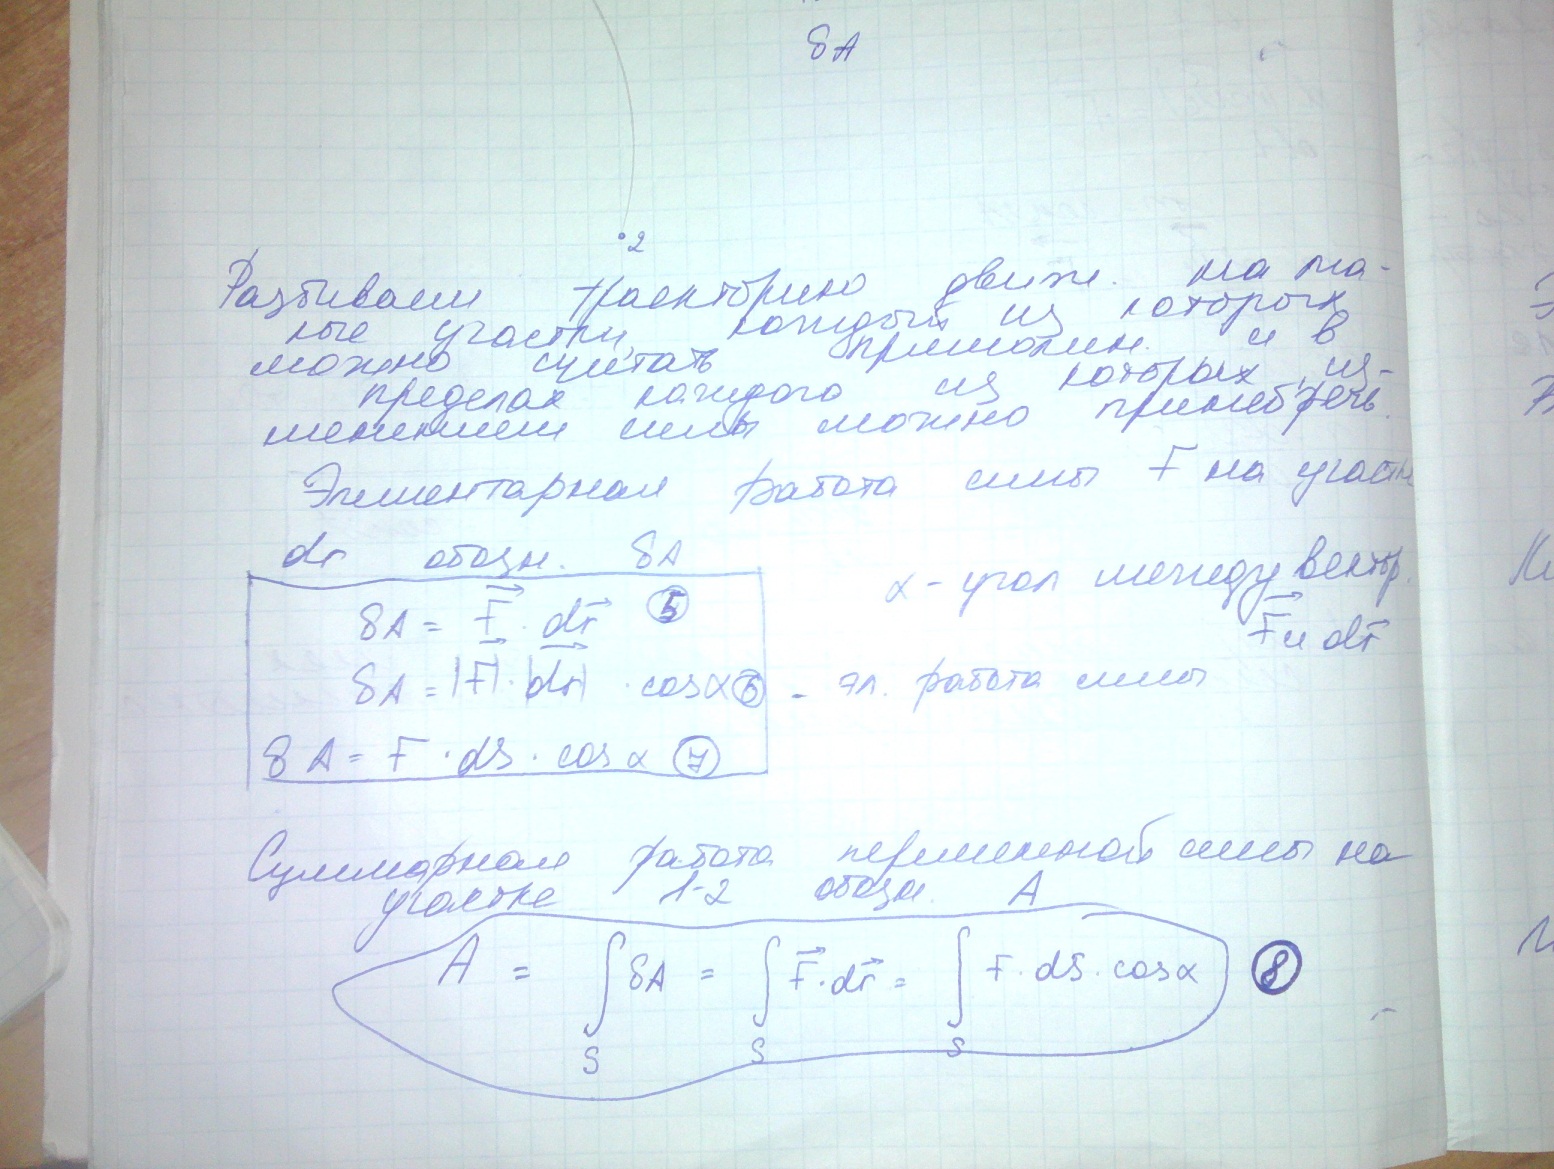 δA
2
Разбиваем траекторию движ. на ма-
лые участки, каждый из которых
можно считать прямолин. и в
пределах каждого из которых из-
менением силы можно пренебречь.
Элементарная работа силы F на участк
dr обозн. δA
δA = F⃗ · dr⃗ (5)
α - угол между вектор.
F⃗ и dr⃗
δA = |F⃗| · |dr⃗| · cosα (6) - эл. работа силы
δA = F · dS · cos α (7)
Суммарная работа переменной силы на
участке 1-2 обозн. A
A = ∫ δA = ∫ F⃗ · dr⃗ = ∫ F · dS · cosα (8)
S S S